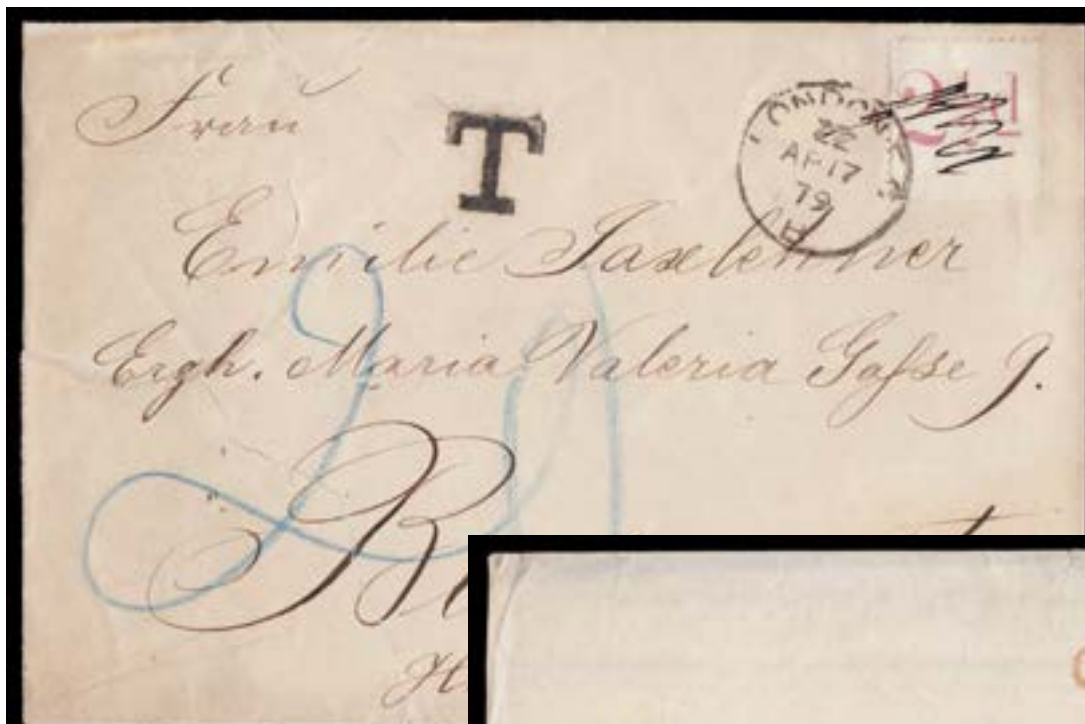 Frau
T
LONDON
22
AP 17
79
A
Emilie Saxlehner
Erzh. Maria Valeria Gasse